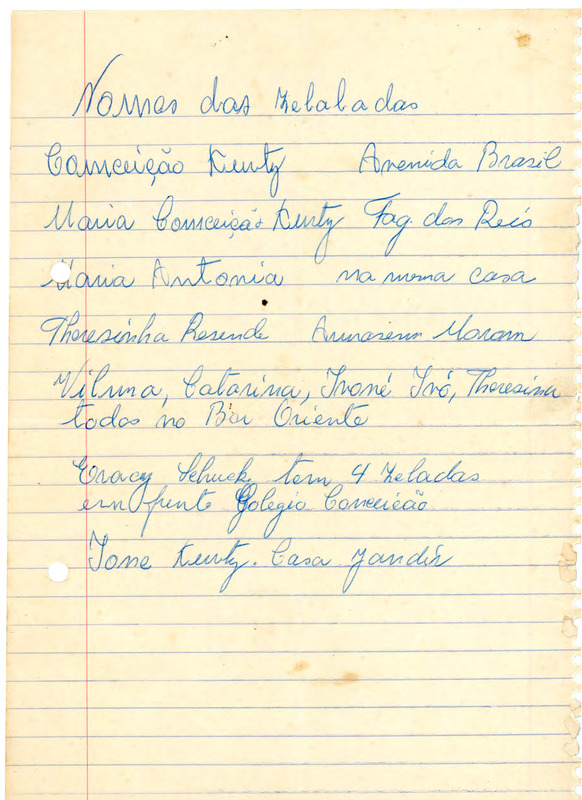 Nomes das Zelaladas
Comceição Kurtz Avenida Brasil
Maria Comceição Kurtz Fag. dos Reis
Maria Antonia na mema casa
Theresinha Resende Armasem Maram
Vilma, Catarina, Ivoné Ivó, Theresinha
todas no Bar Oriente
Eracy Schuck tem 4 Zeladas
em frente Colegio Conceição
Ione Kurtz. Casa Jandir